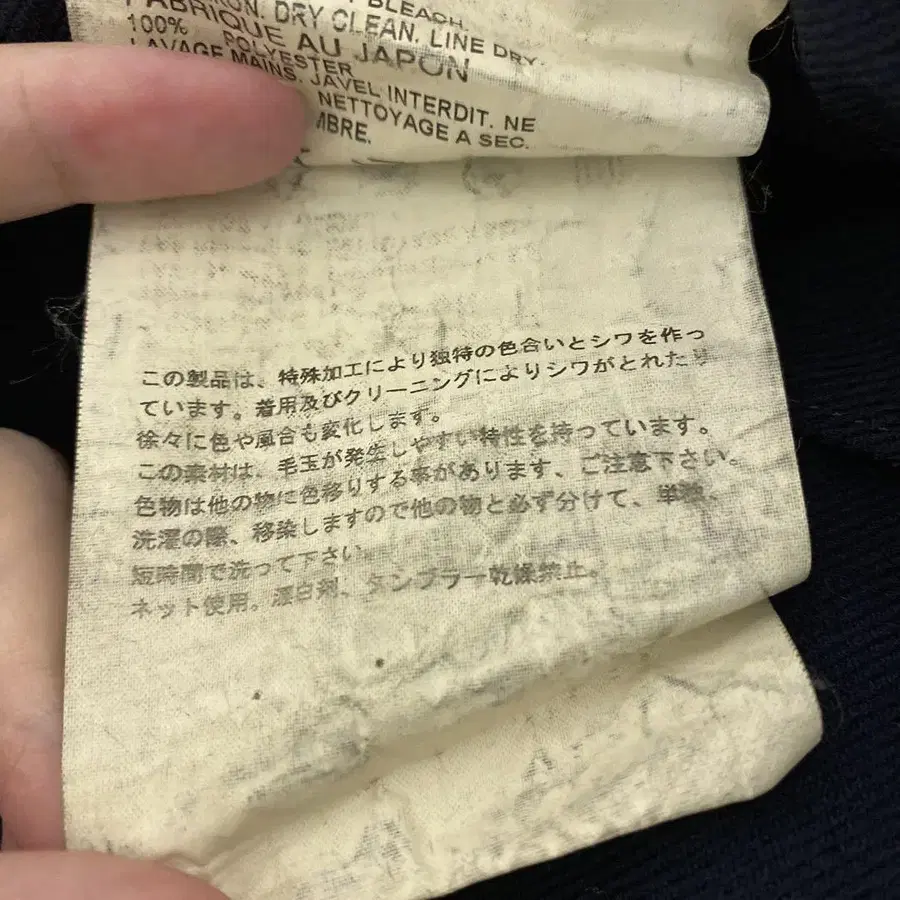 BLEACH.
DRY CLEAN. LINE DRY.
FABRIQUE AU JAPON
100% POLYESTER
LAVAGE MAINS. JAVEL INTERDIT. NE
NETTOYAGE A SEC.
MBRE.
この製品は、特殊加工により独特の色合いとシワを作っ
ています。着用及びクリーニングによりシワがとれたり
徐々に色や風合も変化します。
この素材は、毛玉が発生しやすい特性を持っています。
色物は他の物に色移りする事があります、ご注意下さい。
洗濯の際、移染しますので他の物と必ず分けて、単独、
短時間で洗って下さい。
ネット使用。漂白剤、タンブラー乾燥禁止。